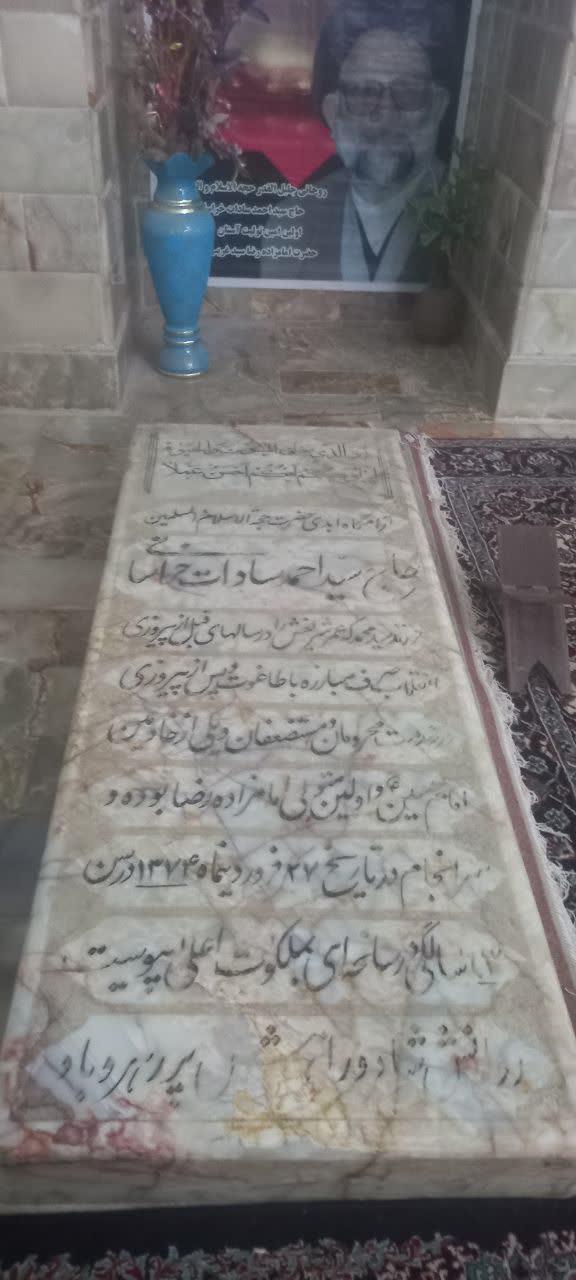 روحانی جلیل القدر حجه الاسلام و ال
حاج سید احمد سادات خراسا
اولین امین تولیت آستان
حضرت امامزاده رضا سید غریب
آرامگاه ابدی حضرت حجة الاسلام و المسلمین
حاج سید احمد سادات خراسانی
فرزند سید محمد که عمر شریفش را در سالهای قبل از پیروزی
انقلاب صرف مبارزه با طاغوت و پس از پیروزی
در خدمت محرومان و مستضعفان و یکی از خادمین
امام حسین ع و اولین متولی امامزاده رضا بوده و
سرانجام در تاریخ ۲۷ فروردینماه ۱۳۷۴ در سن
سالگی در سانحه ای بملکوت اعلی پیوست
روانش شاد و راهش پر رهرو باد